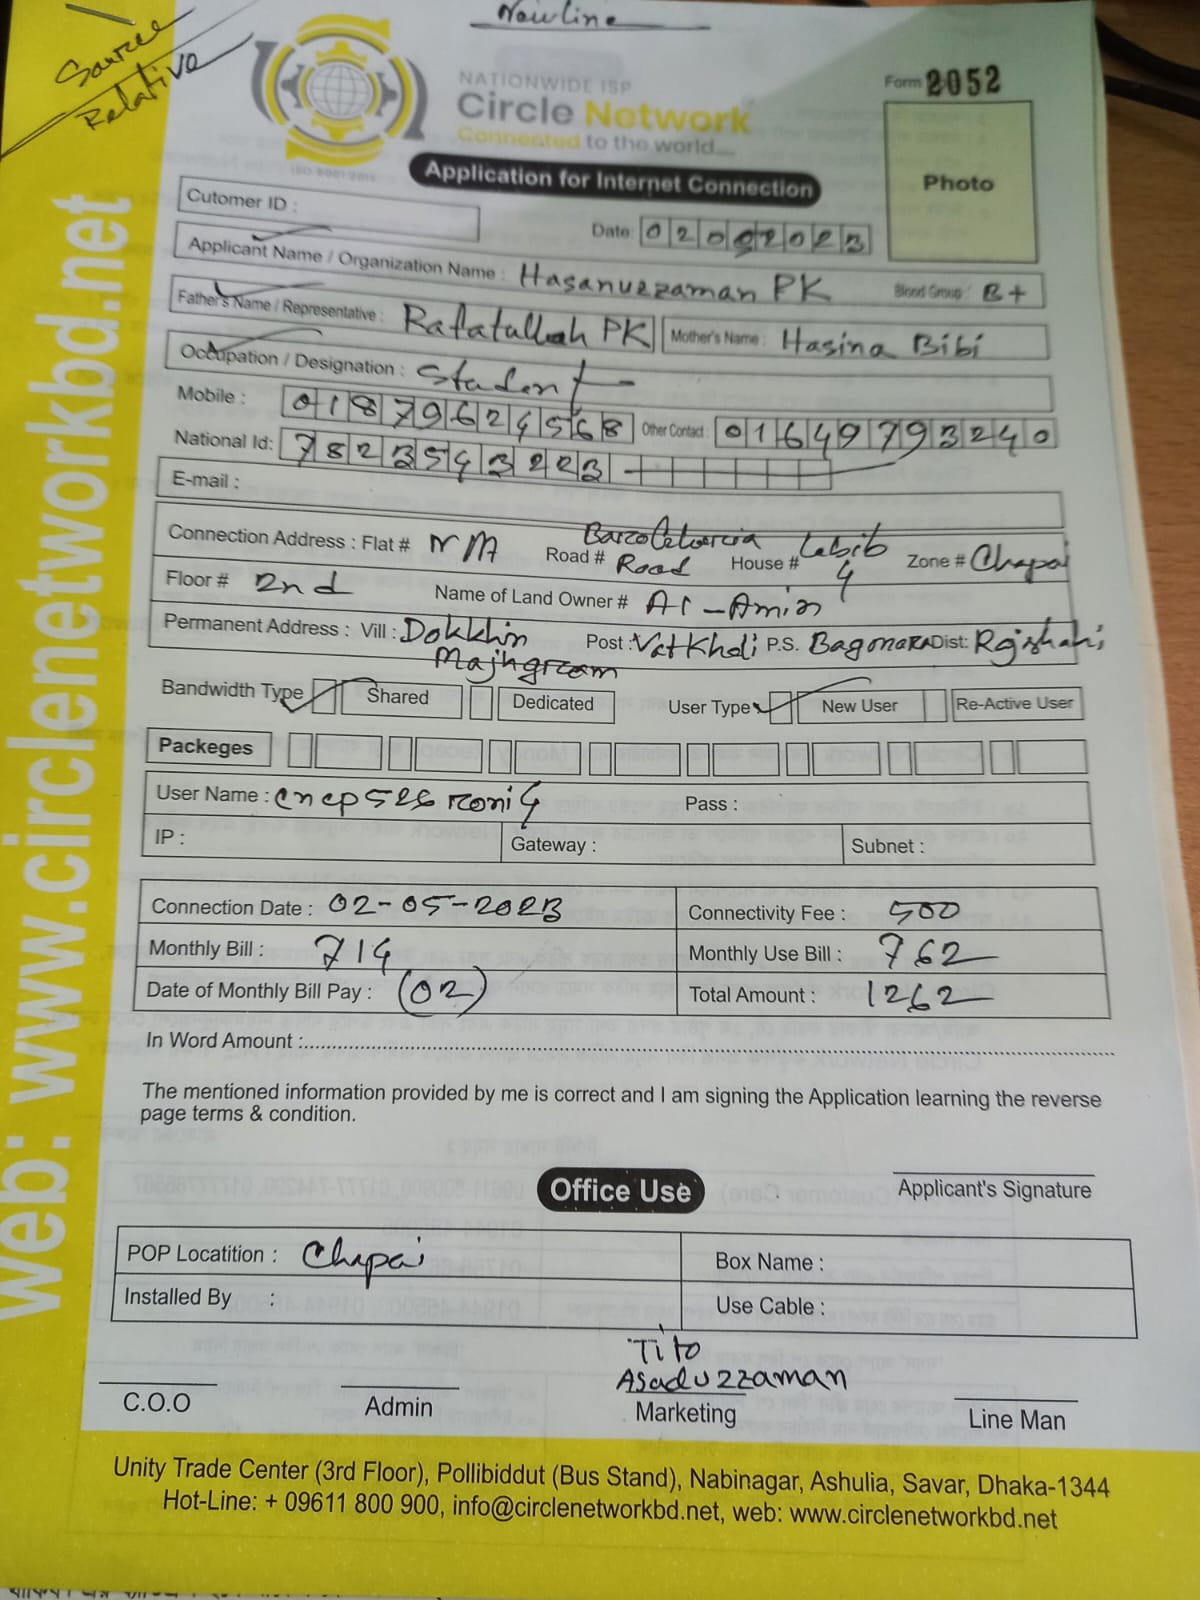 Newline
Source
Relative
NATIONWIDE ISP
Circle Network
Connected to the world...
ISO 9001:2015
Form 2052
Application for Internet Connection
Photo
Cutomer ID :
Date: 02052023
Applicant Name / Organization Name : Hasanuzzaman PK Blood Group : B+
Father's Name / Representative : Rafatullah PK Mother's Name : Hasina Bibi
Occupation / Designation : Student
Mobile : 01879624568 Other Contact : 01649793240
National Id: 7823543223
E-mail :
Connection Address : Flat # NM Road # Road House # Labib 4 Zone # Chapai
Floor # 2nd Name of Land Owner # Al-Amin
Permanent Address : Vill : Dokkhin Majhgram Post : VatKholi P.S. Bagmara Dist: Rajshahi
Bandwidth Type Shared Dedicated User Type New User Re-Active User
Packeges
User Name : cncp526roni4 Pass :
IP : Gateway : Subnet :
Connection Date : 02-05-2023 Connectivity Fee : 500
Monthly Bill : 714 Monthly Use Bill : 762
Date of Monthly Bill Pay : (02) Total Amount : 1262
In Word Amount :
The mentioned information provided by me is correct and I am signing the Application learning the reverse
page terms & condition.
Applicant's Signature
Office Use
POP Locatition : Chapai Box Name :
Installed By : Use Cable :
Tito
Asaduzzaman
C.O.O Admin Marketing Line Man
Unity Trade Center (3rd Floor), Pollibiddut (Bus Stand), Nabinagar, Ashulia, Savar, Dhaka-1344
Hot-Line: + 09611 800 900, info@circlenetworkbd.net, web: www.circlenetworkbd.net
Web: www.circlenetworkbd.net